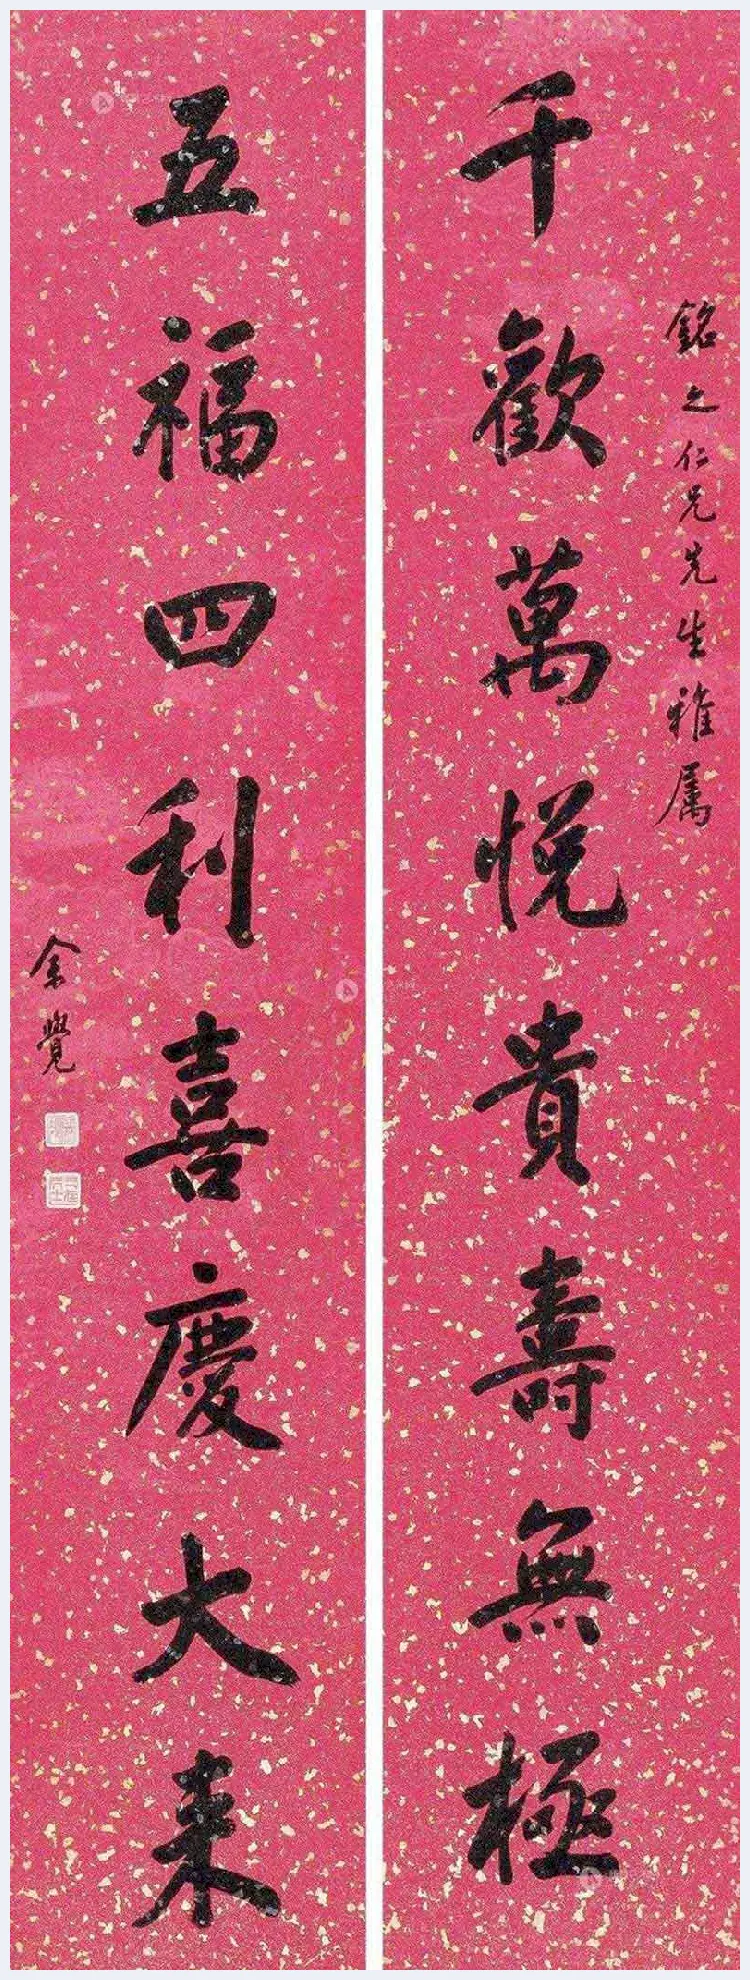 銘之仁兄先生雅属
千歡萬悦貴壽無極
五福四利喜慶大来
余覺